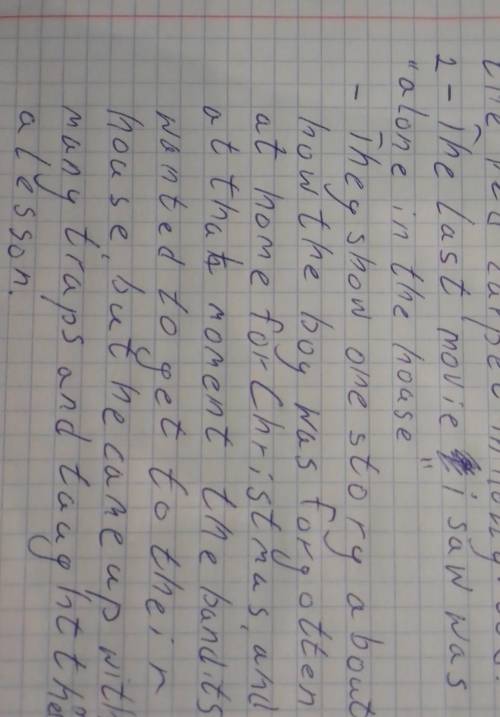 2 - The last movie i saw was
"alone in the house"
- They show one story about
how the boy was forgotten
at home for Christmas, and
at that moment the bandits
wanted to get to their
house, but he came up with
many traps and taught the
a lesson.